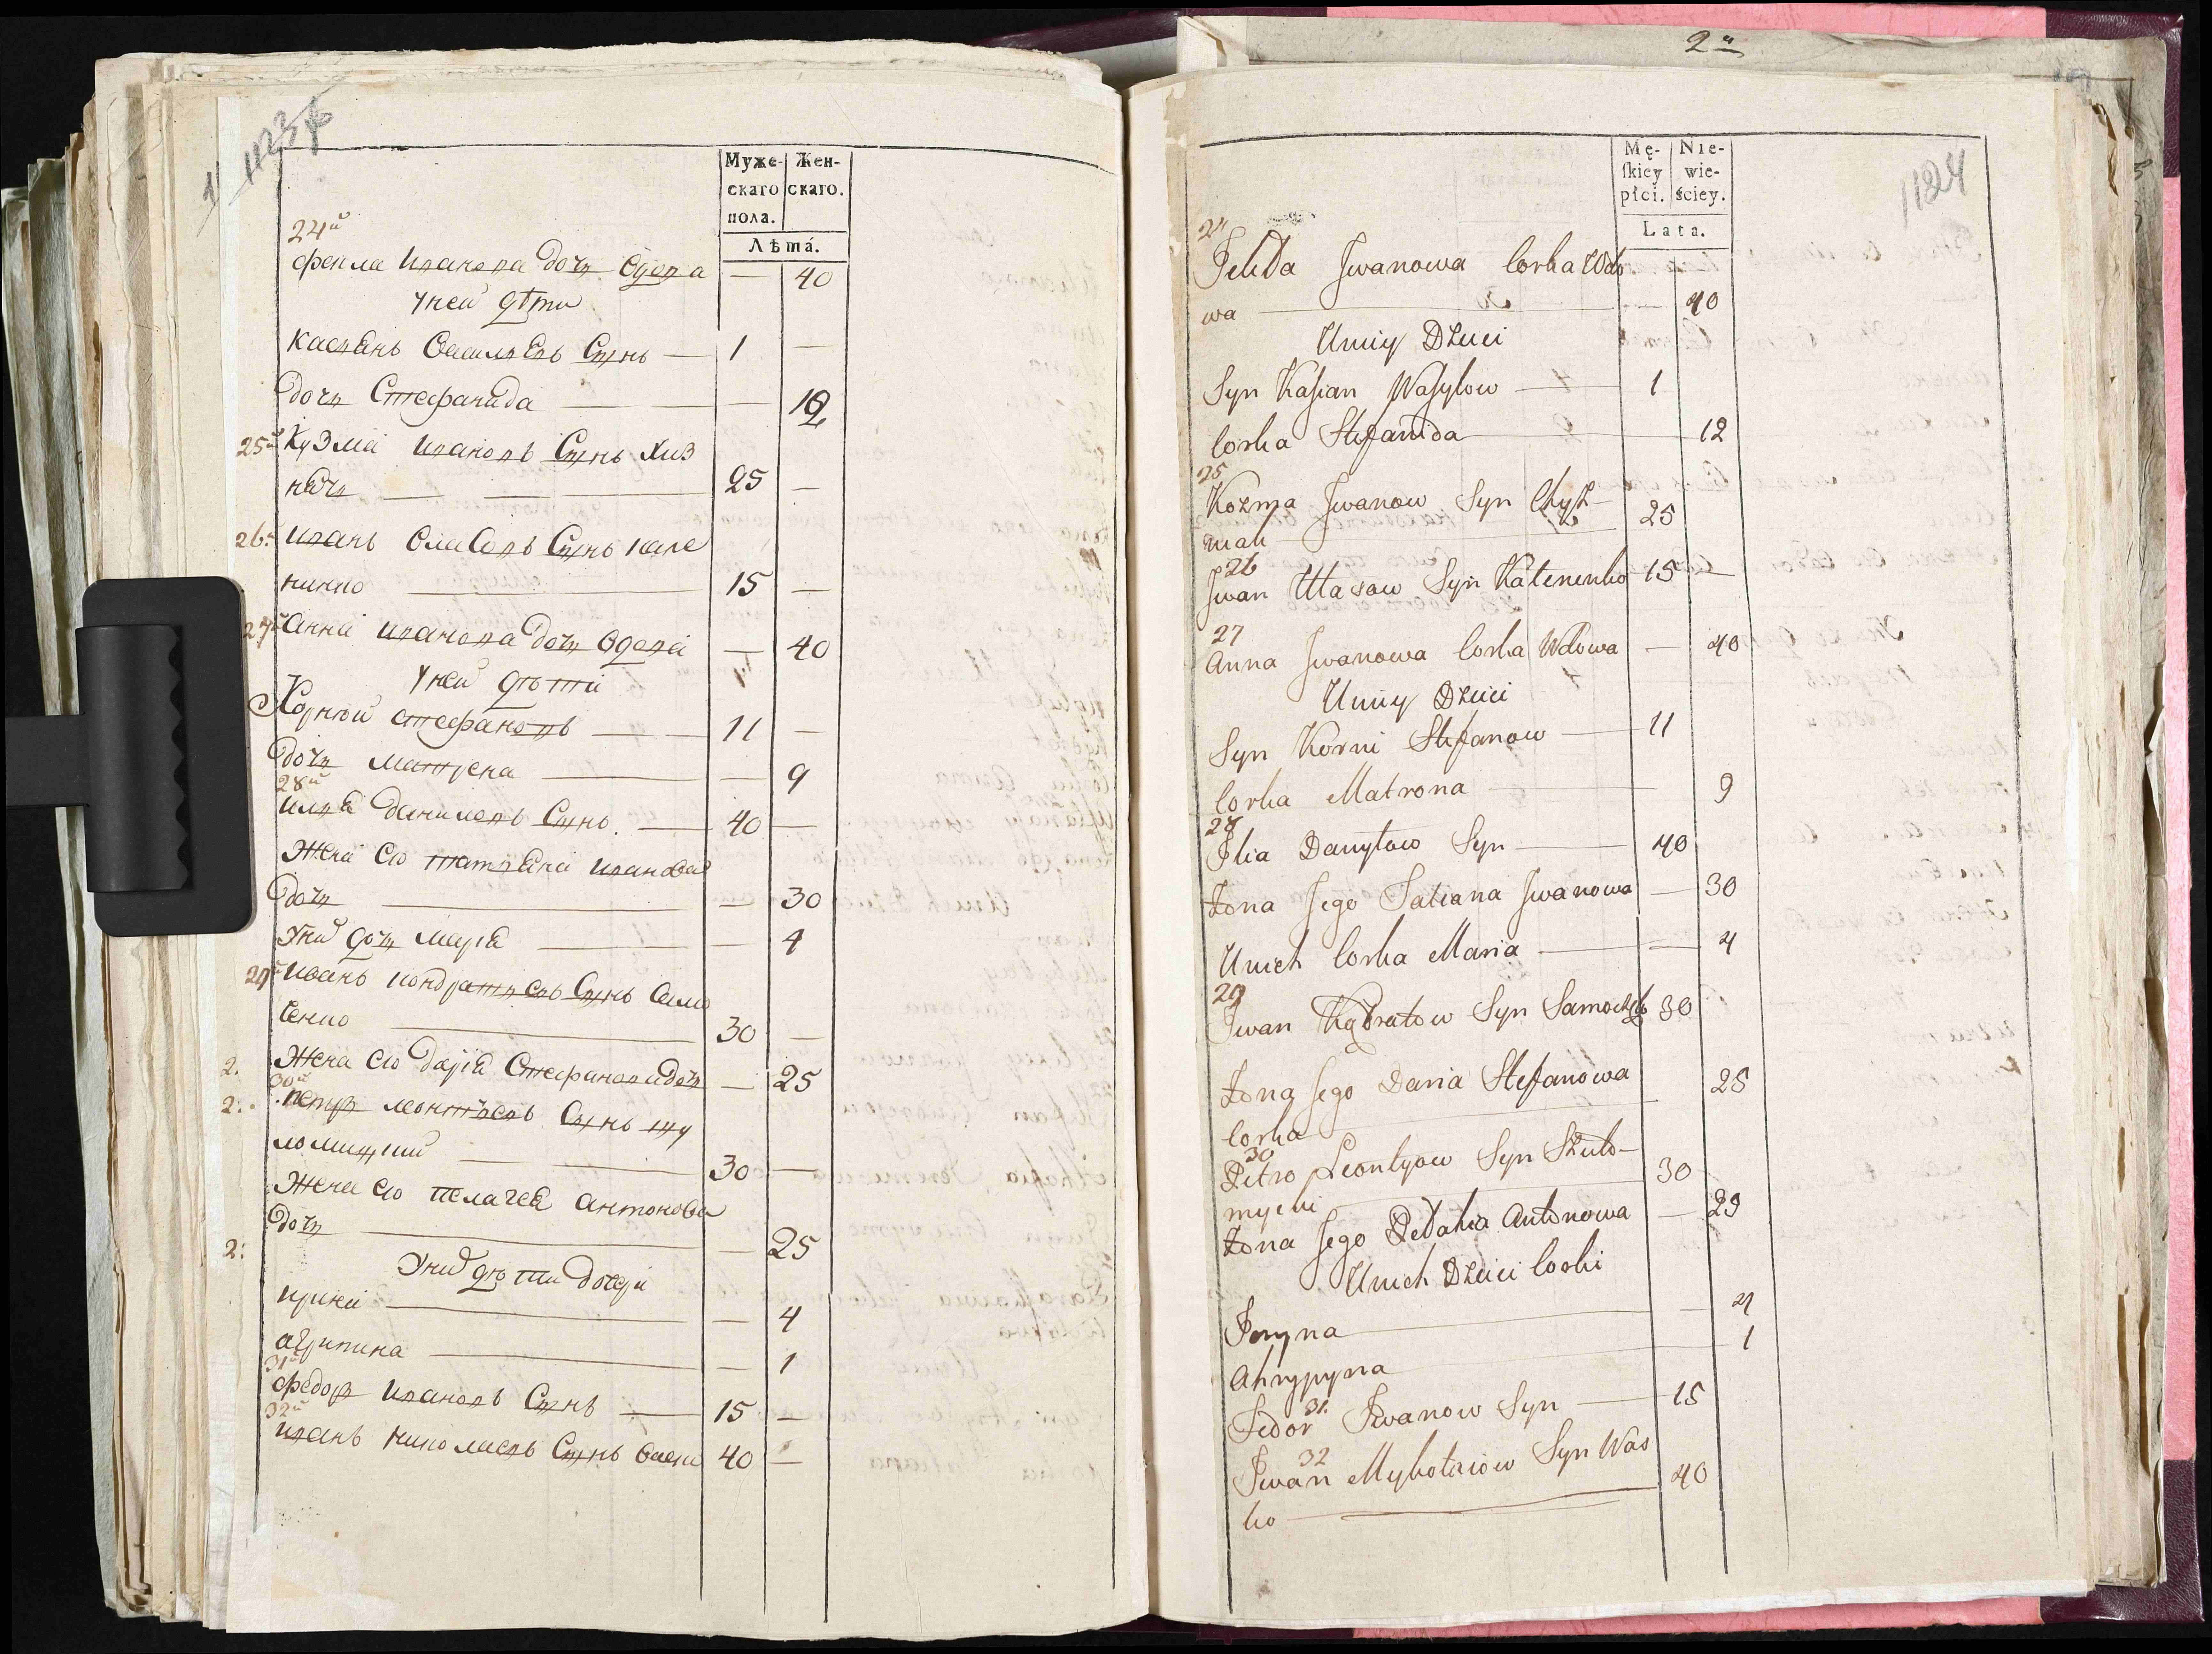 1123
Муже-
скаго
пола.
Жен-
скаго.
Лѣта.
24й
Фекла Иванова дочь вдова — 40
у неи дѣти
Касьянъ Васильевъ Сынъ — 1 —
дочь Стефанида — — 12
25й Кузма Ивановъ Сынъ Хиз
— 25 —
26й Иванъ Власовъ Сынъ Кате
ненко — 15 —
27й Анна Иванова дочь вдова — 40
у неи дѣти
Корнѣй Стефановъ — 11 —
дочь Матрена — — 9
28й
Илья Даниловъ Сынъ. — 40 —
Жена его Татьяна Иванова
дочь — — 30
У них дочь Марія — — 4
29й Иванъ Кондратьевъ Сынъ Само
— 30 —
2. Жена его Дарія Стефанова дочь — 25
30й
2. Петръ Леонтьевъ Сынъ
— 30 —
Жена его Пелагея Антонова
дочь — — 25
2.
У них дѣти дочери
Ирина — — 4
Агрипина — — 1
31й
Федоръ Ивановъ Сынъ — 15 —
32й
Иванъ Николаевъ Сынъ Васки 40 —
2й
1124
Mę-
ſkiey
płci.
Nie-
wie-
ściey.
Lata.
24
Fekła Jwanowa Corka Wdo
wa — — 40
Uniiy Dzieci
Syn Kasian Wasylow — 1
Corka Stefanida — 12
25
Kozma Jwanow Syn Chyż-
niak — 25
26
Jwan Własow Syn Katenenko 15 —
27
Anna Jwanowa Corka Wdowa — 40
Uniiy Dzieci
Syn Korni Stefanow — 11
Corka Matrona — 9
28
Jlia Danyłow Syn — 40
Żona Jego Tatiana Jwanowa — 30
Unich Corka Maria — — 4
29
Jwan Kądratow Syn 30
Żona Jego Daria Stefanowa
Corka — 25
30
Petro Leontyow Syn
30
Żona Jego Pelahia Antonowa — 29
Unich Dzieci Corki
Jryna — — 4
Ahrypyna — 1
31.
Fedor Jwanow Syn — 15
32
Jwan Mykołaiow Syn Was
ko — 40